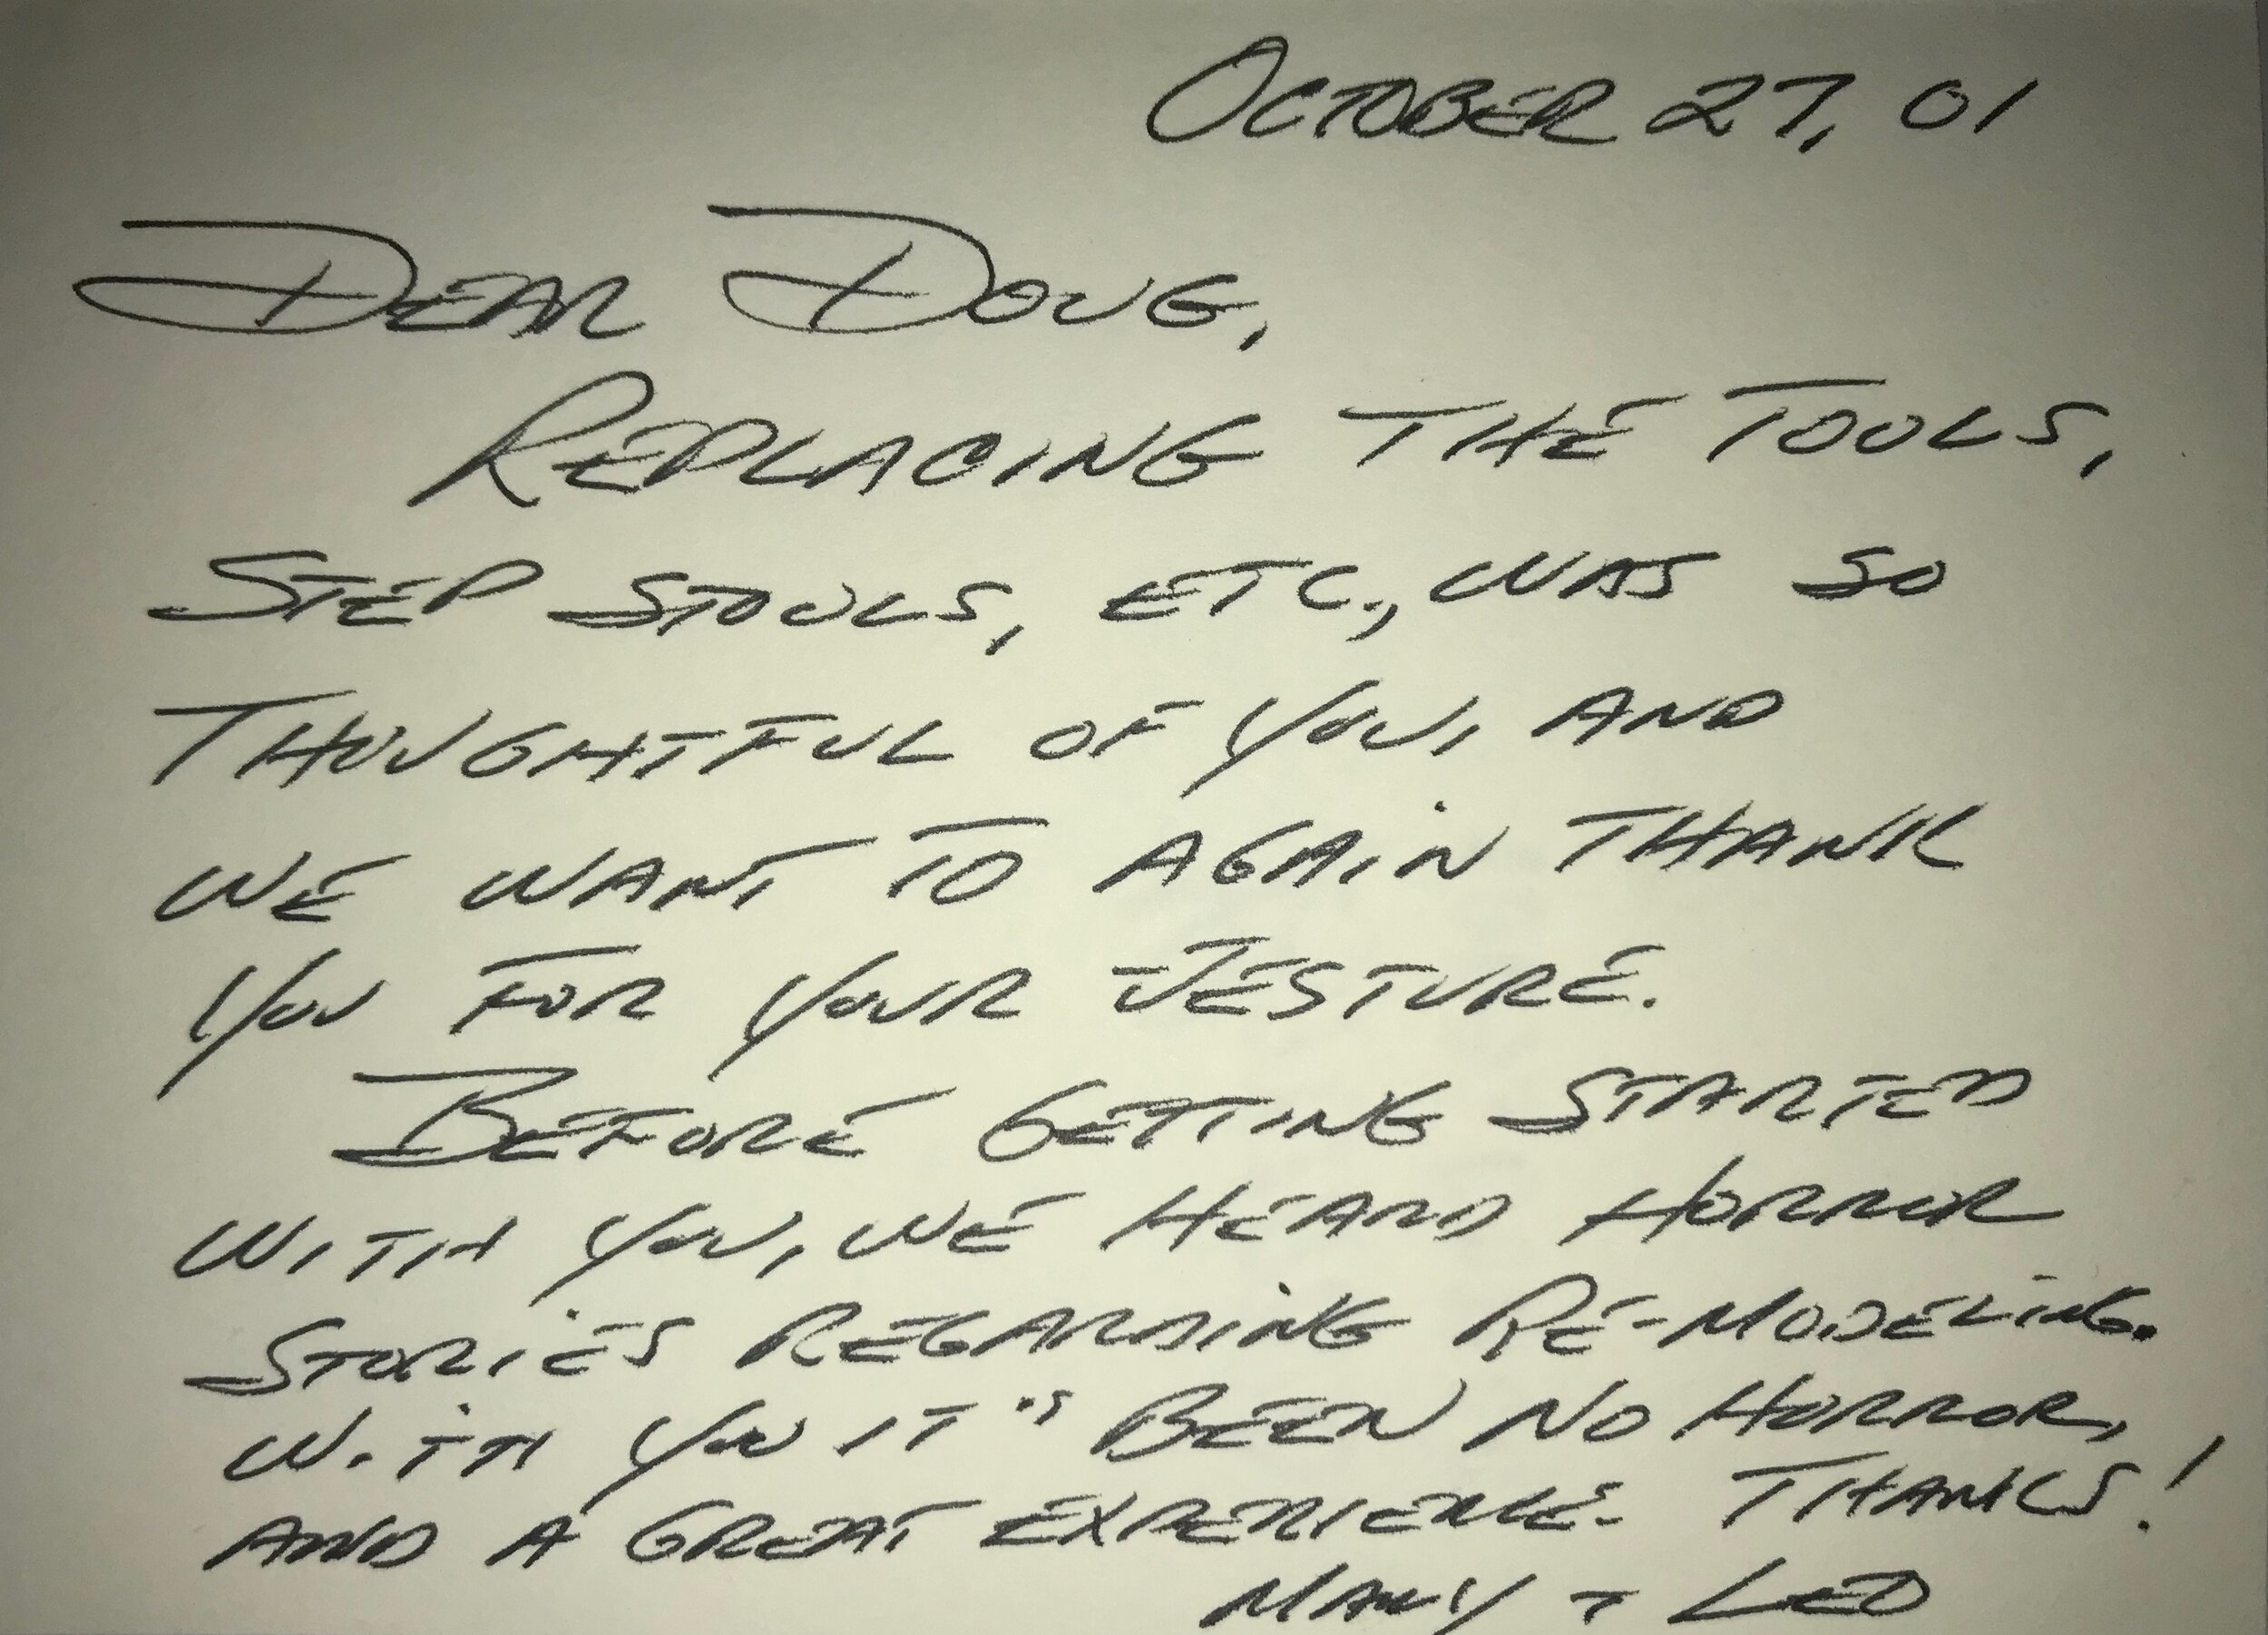 OCTOBER 27, 01
DEAR DOUG,
REPLACING THE TOOLS,
STEP STOOLS, ETC., WAS SO
THOUGHTFUL OF YOU, AND
WE WANT TO AGAIN THANK
YOU FOR YOUR JESTURE.
BEFORE GETTING STARTED
WITH YOU, WE HEARD HORROR
STORIES REGARDING RE-MODELING.
WITH YOU IT'S BEEN NO HORROR,
AND A GREAT EXPERIENCE. THANKS!
+ LEO